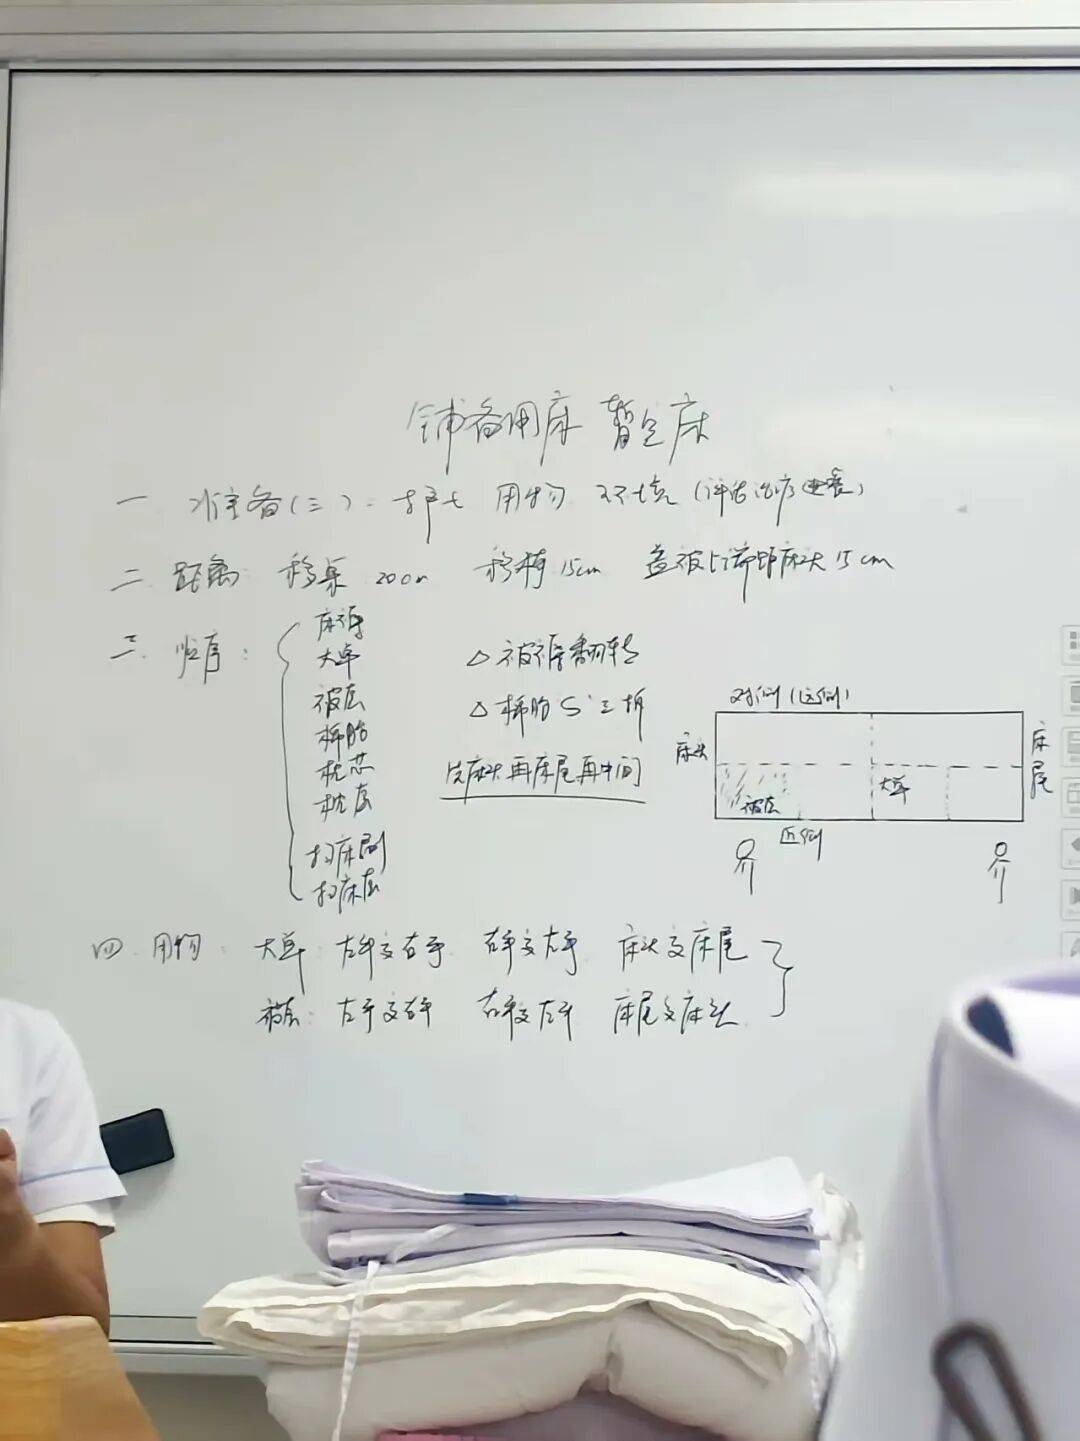 铺备用床 暂空床
一 准备(三): 护士 用物 环境(评估治疗进餐)
二 距离 移桌20cm 移椅15cm 盖被上端距床头15cm
三 顺序:
床褥
大单
被套
棉胎
枕芯
枕套
扫床刷
扫床套
△ 被褥翻转
△ 棉胎 S 三折
先床头再床尾再中间
对侧(远侧)
床头
床尾
被套
大单
近侧
四 用物: 大单: 左手交右手 右手交左手 床头交床尾
被套: 左手交右手 右手交左手 床尾交床头